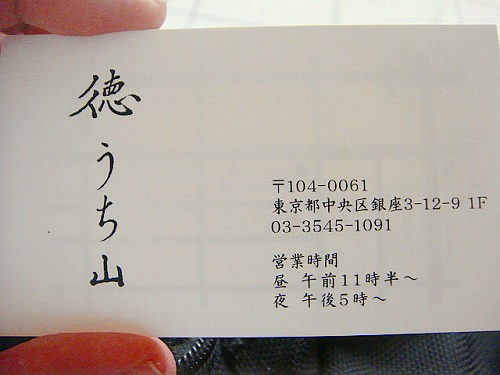 徳うち山
〒104-0061
東京都中央区銀座3-12-9 1F
03-3545-1091
営業時間
昼 午前11時半～
夜 午後5時～